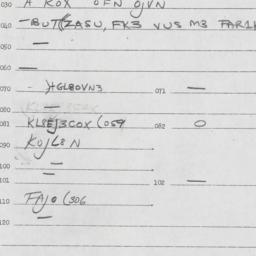 030 A KOX OFN OJVN
040 -BUT(ZASU, FK3 VUS M3 FAR1K
050 —
060 —
070 - )(GLBOVN3 071 —
080 —
081 KL8EJ3COX (059 082 O
090 KOJL8N
100 —
101 — 102 —
110 FAJO (306
120 —